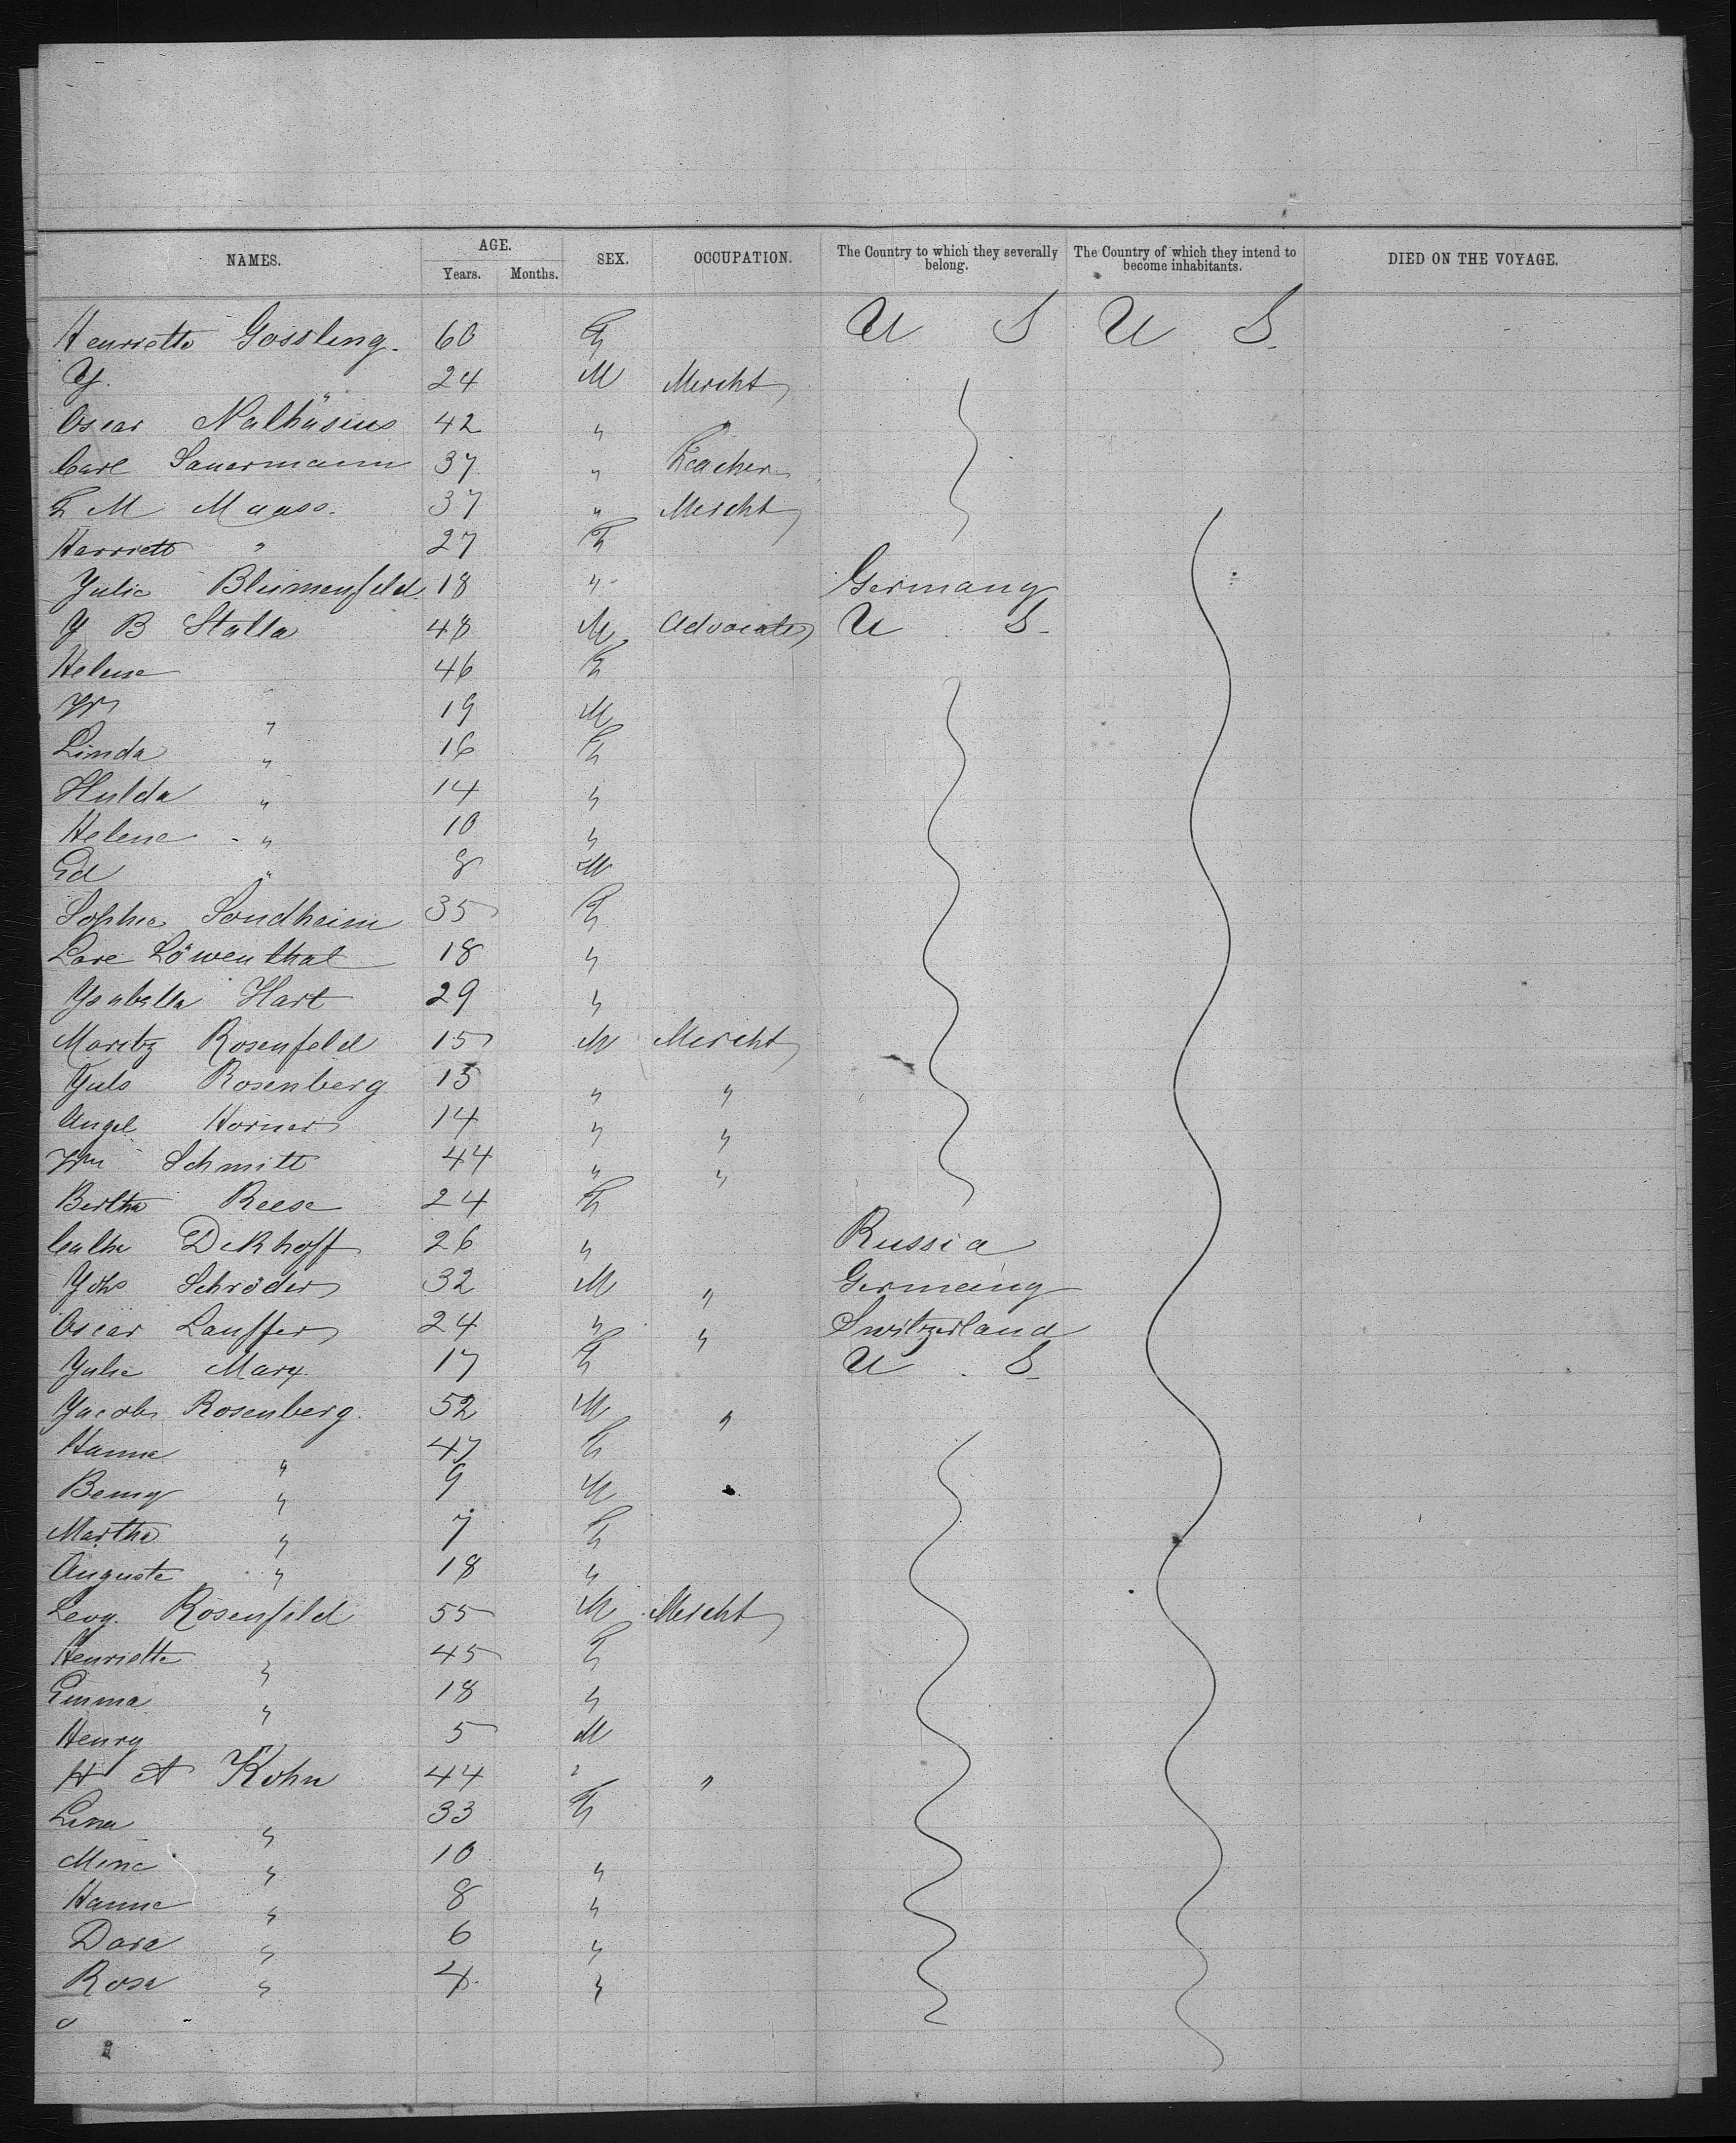 NAMES. AGE. Years. Months. SEX. OCCUPATION. The Country to which they severally belong. The Country of which they intend to become inhabitants. DIED ON THE VOYAGE.
Henriette Gossling. 60 F U S U S.
Y. " 24 M Mercht
Oscar Nathusius 42 " "
Carl Sauermann 37 " Teacher
F M Maass. 37 " Mercht
Harriett " 27 F
Julie Blumenfeld 18 " Germany
J B Stallo 48 M Advocate U S.
Helene 46 F
Wm " 19 M
Linda " 16 F
Hulda " 14 "
Helene " 10 "
Ed " 8 M
Sophie Sondheim 35 F
Lore Löwenthal 18 "
Ysabella Hart 29 "
Moritz Rosenfeld 15 M Mercht
Juls Rosenberg 15 " "
Angel Horner 14 " "
Wm Schmitt 44 " "
Bertha Reese 24 F
Cathe Dekhoff 26 " Russia
Johs Schröder 32 M " Germany
Oscar Lauffer 24 " " Switzerland
Julie Marx. 17 F U S
Jacob Rosenberg. 52 M "
Hanne " 47 F
Benny " 9 M
Martha " 7 F
Auguste " 18 "
Levy. Rosenfeld 55 M Mercht
Henriette " 45 F
Emma " 18 "
Henry " 5 M
H A Kohn 44 " "
Lina " 33 F
Mina " 10 "
Hanne " 8 "
Dora " 6 "
Rosa " 4 "